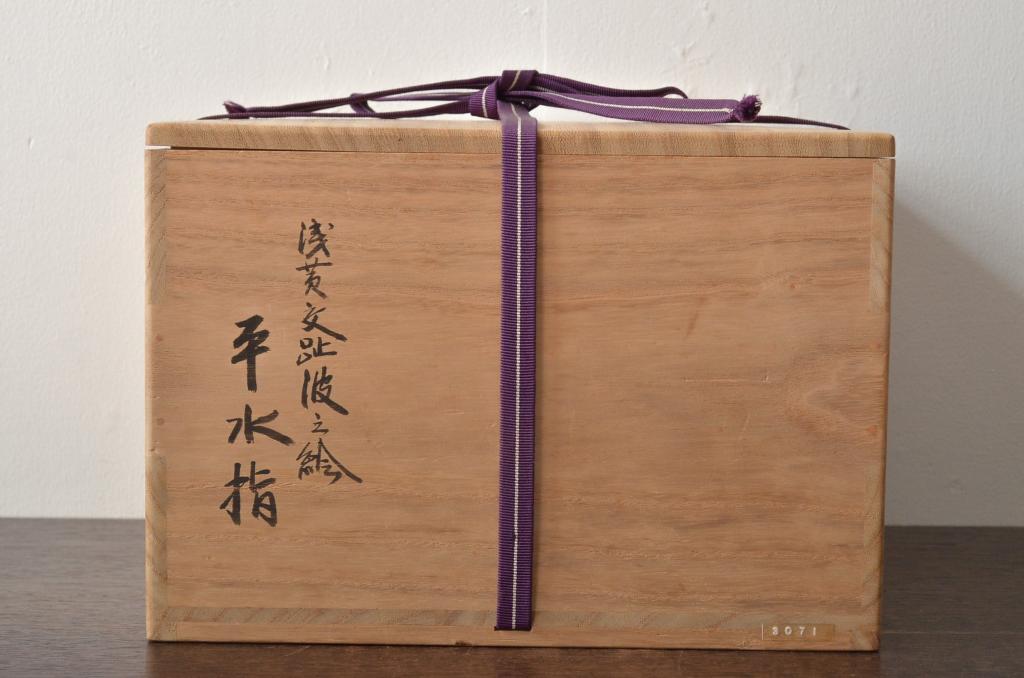 浅黄交趾波之絵
平水指
3071